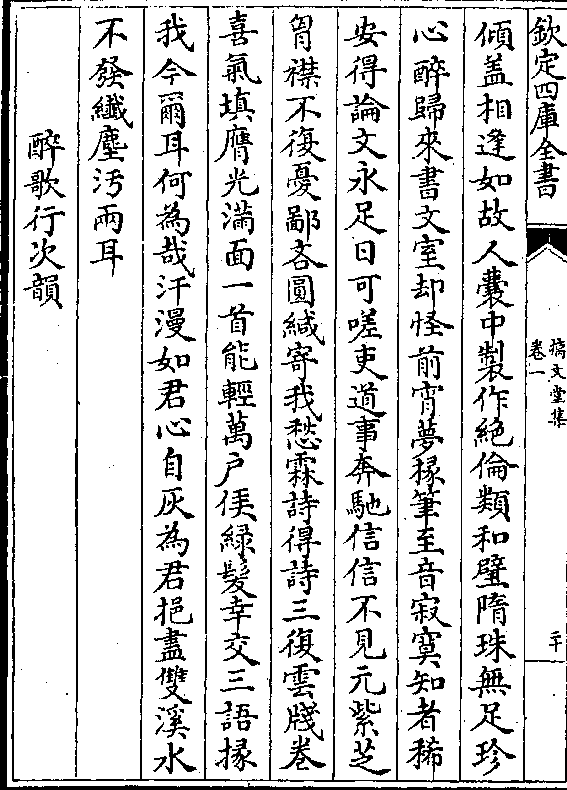 欽定四庫全書
摛文堂集
卷一
二十
傾蓋相逢如故人囊中製作絶倫類和璧隋珠無足珍
心醉歸來書文室却怪前宵夢稼筆至音寂寞知者稀
安得論文永足日可嗟吏道事奔馳信信不見元紫芝
胷襟不復憂鄙吝圓緘寄我愁霖詩得詩三復雲牋卷
喜氣填膺光滿面一首能輕萬户侯緑髮幸交三語掾
我今爾耳何為哉汗漫如君心自灰為君挹盡雙溪水
不發纖塵汚兩耳
醉歌行次韻